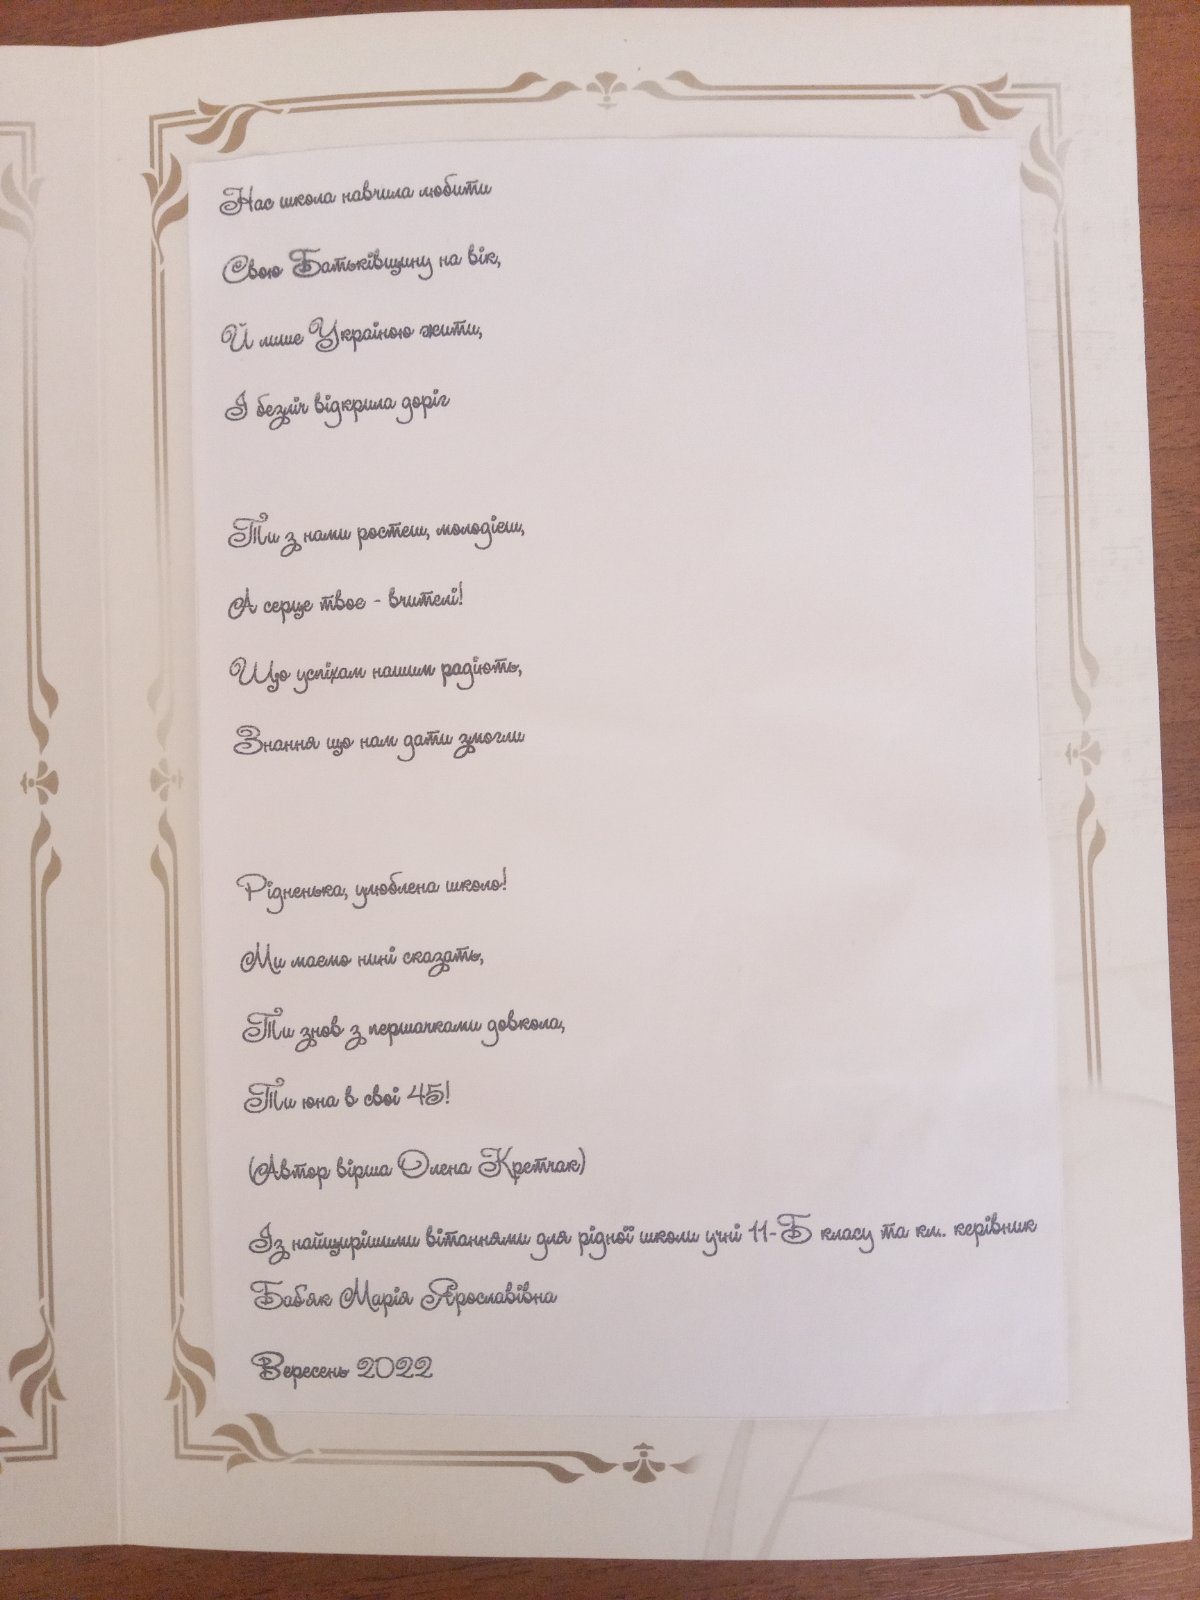 Нас школа навчила любити
Свою Батьківщину на вік,
Й лише Україною жити,
І безліч відкрила доріг
Ти з нами ростеш, молодієш,
А серце твоє - вчителі!
Що успіхам нашим радіють,
Знання що нам дати змогли
Рідненька, улюблена школо!
Ми маємо нині сказать,
Ти знов з першачками довкола,
Ти юна в свої 45!
(Автор вірша Олена Кретчак)
Із найщирішими вітаннями для рідної школи учні 11-Б класу та кл. керівник
Баб'як Марія Ярославівна
Вересень 2022